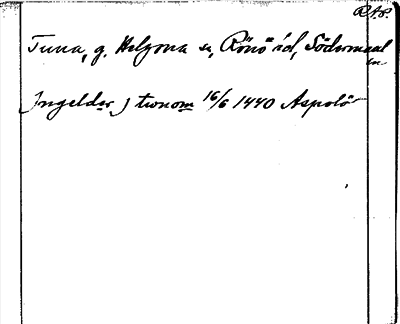 R.A.P.
Tuna, g. Helgona s:n, Rönö hd, Södermanl
Ingeldær j twnom 16/6 1440 Aspolö